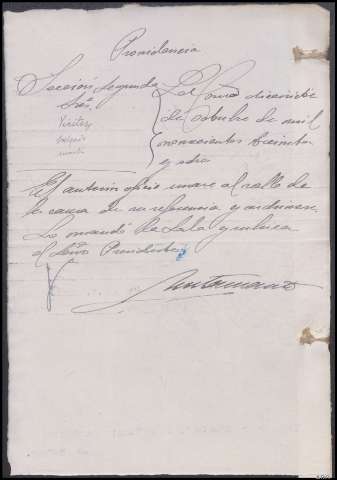 Providencia
Sección Segunda
Sres.
La Coruña diecisiete
de Octubre de mil
novecientos treinta
y ocho
El anterior oficio unase al rollo de
la causa de su referencia y
Lo mandó la Sala y rubrica
el Señor Presidente